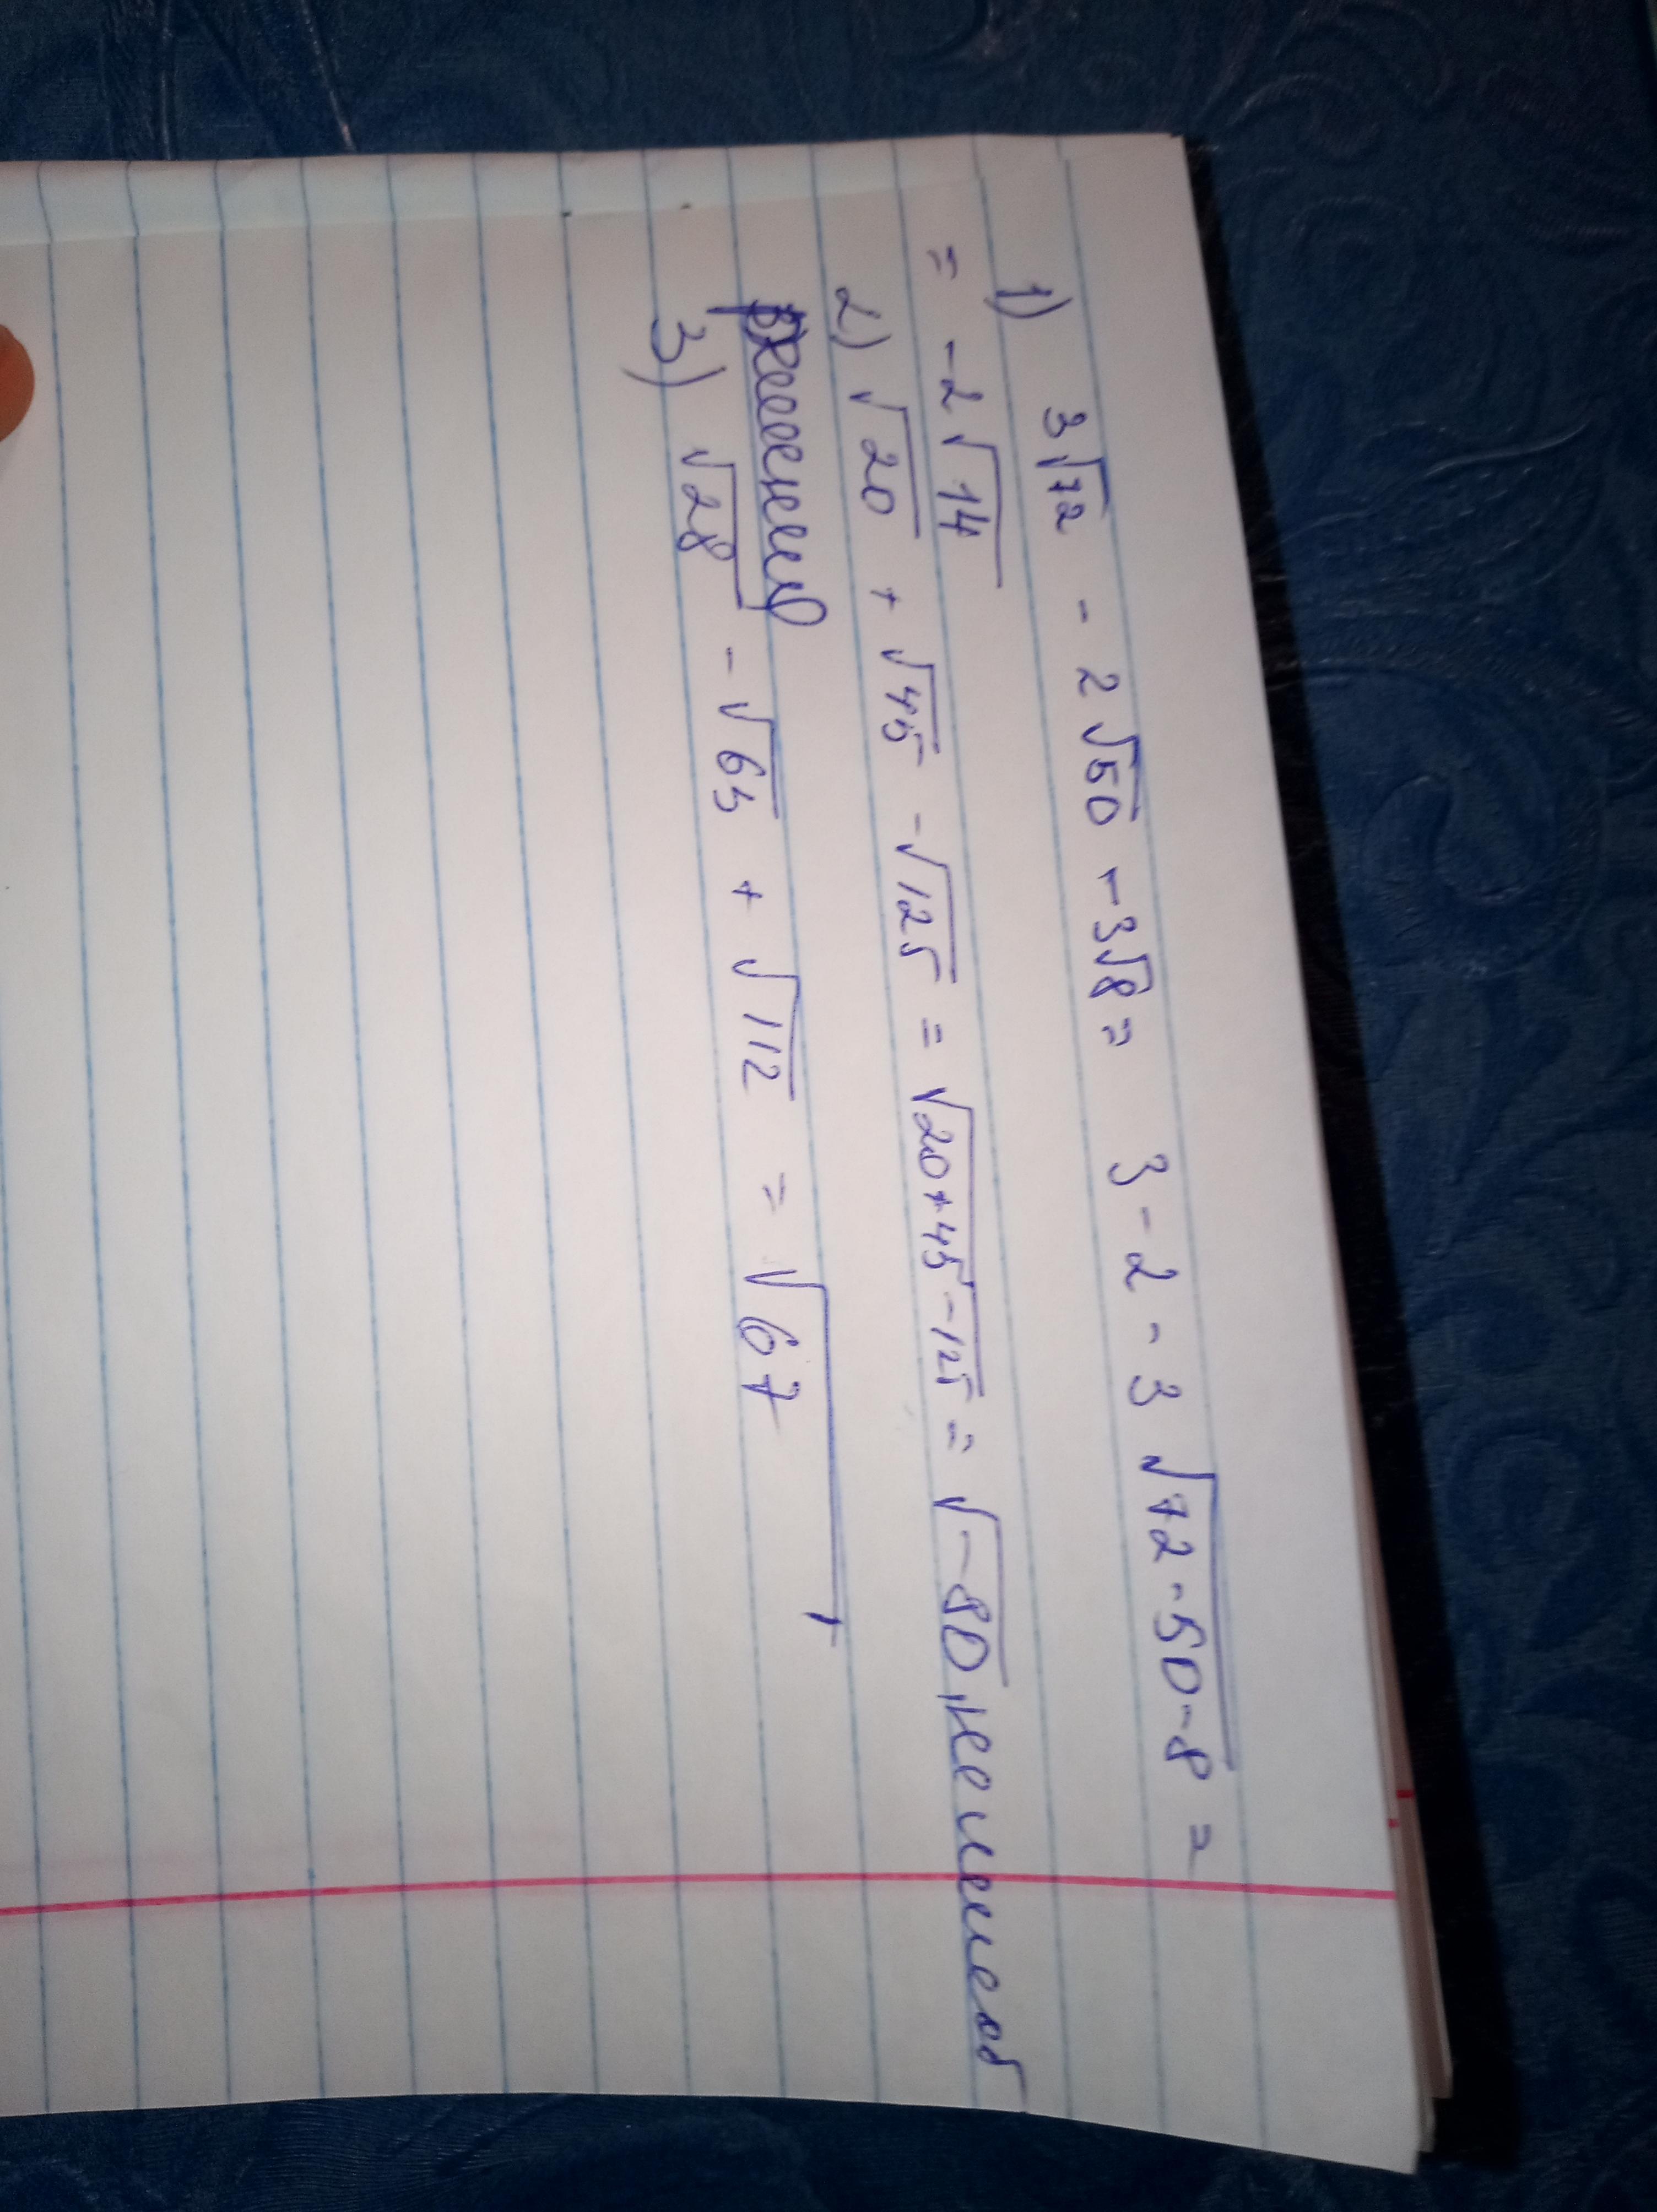 1) 3√72 - 2√50 - 3√8 = 3 - 2 - 3 √72-50-8 =
= -2√14
2) √20 + √45 - √125 = √20+45-125 = √-80, не имеет
решений
3) √28 - √63 + √112 = √67